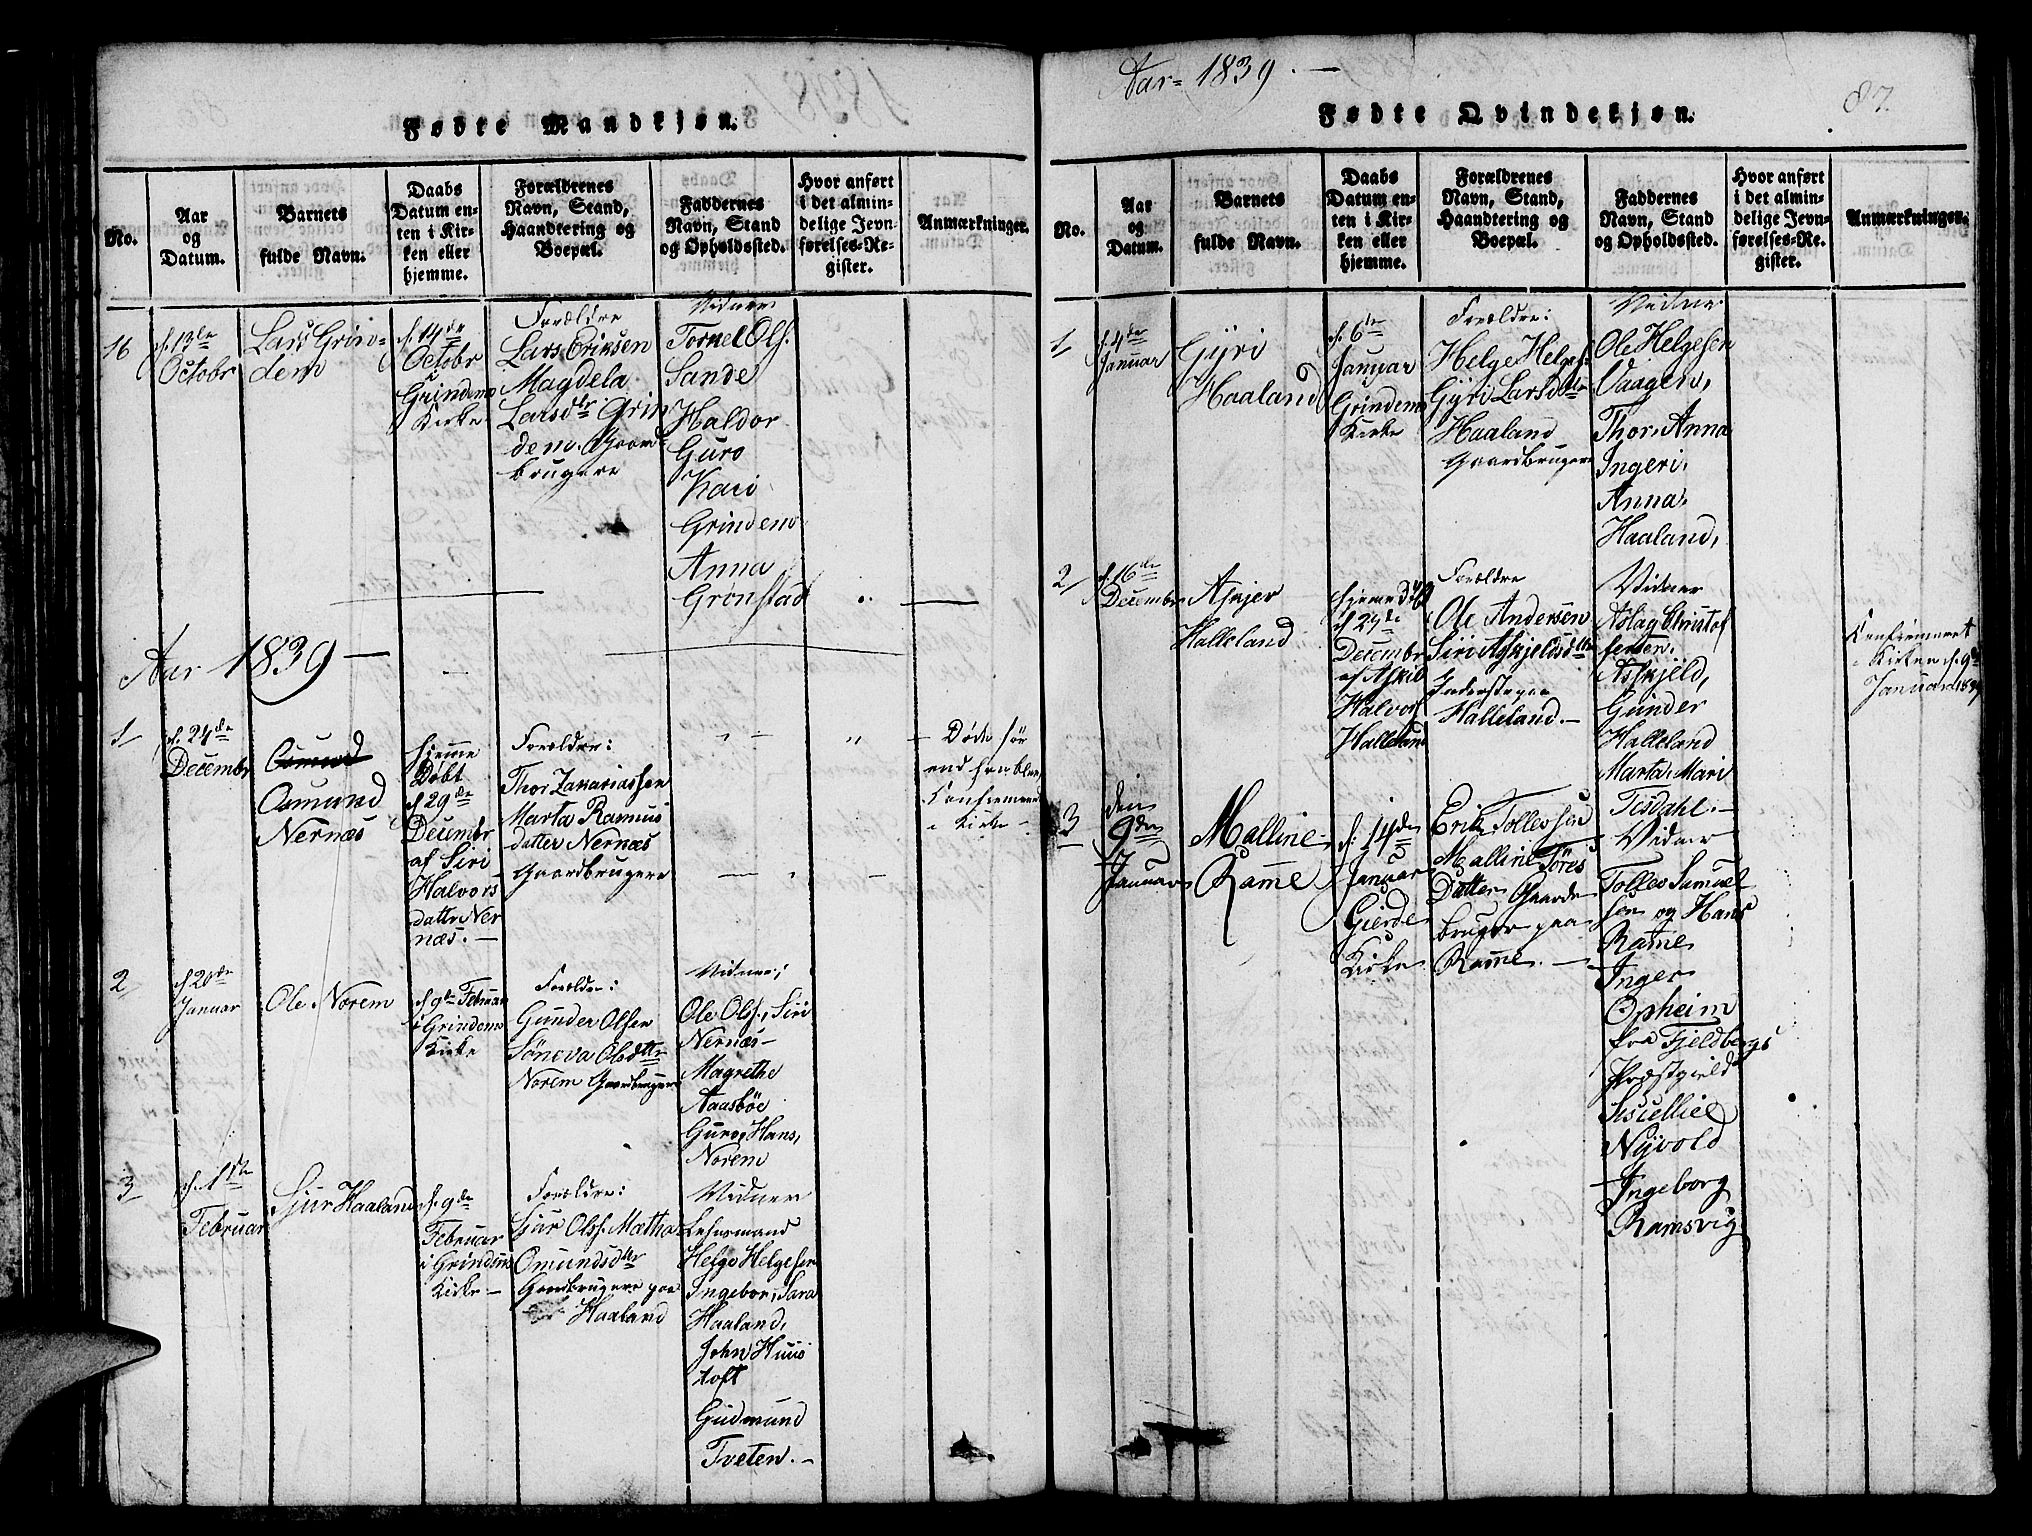 Fødte Mandkjøn.
No.
Aar
og
Datum.
Barnets
fulde Navn.
Daabs
Datum en-
ten i Kir-
ken eller
hjemme.
Forældrenes
Navn, Stand,
Haandtering og
Boepæl.
Faddernes
Navn, Stand
og Opholdssted.
Hvor anført
i det almin-
delige Jevn-
førelses-Re-
gister.
Anmærkninger.
16
d. 13de
Octobr
Lars Grin-
dem
d. 14de
Octobr
i
Grindems
Kirke
Forældre
Lars Eriksen
Magdela
Larsdtr Grin
dem. Gaard-
brugere
Vidner
Tornel Ols.
Sande
Haldor
Guro
Kari
Grindem
Anna
Grønstad
Aar 1839
1
d. 24de
Decembr
Osmund
Nernæs
hjemme
Døbt
d 29de
Decembr
af Siri
Halvors-
datter Ner
næs.
Forældre:
Thor Zakariassen
Marta Rasmus
datter Nernæs
Gaardbrugere
Døde før
end han blev
Confirmeret
i Kirke
2
d 20de
Januar
Ole Norem
d 9de Februar
i Grindems
Kirke
Forældre:
Gunder Olsen
Søneva Olsdttr
Norem Gaardbrugere
Vidner;
Ole Ols., Siri
Nernæs
Magrethe
Aasbøe
Guro, Hans,
Norem
3
d. 1ste
Februar
Sjur Haaland
d. 9de
Februar
i Grindems
Kirke
Forældre:
Sjur Ols. Matha
Omundsdttr
Gaardbrugere paa
Haaland
Vidner
Lehnsmand
Helge Helgesen
Ingebor, Sara
Haaland,
John Huus
toft
Gudmund
Tveten.
Aar 1839.
87.
Fødte Qvindekjøn.
No.
Aar
og
Datum.
Barnets
fulde Navn.
Daabs
Datum en-
ten i Kir-
ken eller
hjemme.
Forældrenes
Navn, Stand,
Haandtering og
Boepæl.
Faddernes
Navn, Stand
og Opholdssted.
Hvor anført
i det almin-
delige Jevn-
førelses-Re-
gister.
Anmærkninger.
1
d. 4de
Januar
Gyri
Haaland
d. 6te
Januar
Grindems
Kirke
Forældre:
Helge Helges.
Gyri Larsdttr
Haaland
Gaardbrugere
Vidner.
Ole Helgesen
Vaagen,
Thor, Anna
Ingeri,
Anna,
Haaland,
2
d. 16de
Decembr
Askjer
Halleland
hjemedøbt
d 27de
Decembr
af Askild
Halvors
Halleland
Forældre
Ole Andersen
Siri Askjeldsdttr
Inderstepaa
Halleland.
Vidner
Aslag Christof
fersen.
Askjeld,
Gunder
Halleland
Marta, Mari
Tesdahl.
Confirmeret
i Kirken d. 9de
Januar 1839
3
den
9den
Januar
Malline
Rame
d. 14den
Januar
Gierde
Kirke
Erik Tollevsen
Malline Tøres
Datter Gaard
bruger paa
Rame.
Vidner
Tollev Samuel
sen og Hans
Rame
Inger
Opheim
fra Fjeldbergs
Præstgield
Siscellie
Nyvold
Ingeborg
Ramsvig